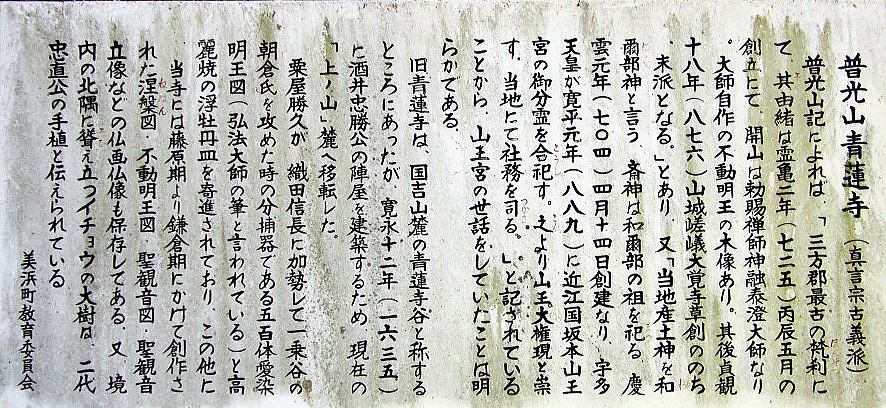 普光山青蓮寺（真言宗古義派）
普光山記によれば「三方郡最古の梵刹に
て、其由緒は霊亀二年（七二五）丙辰五月の
創立にて　開山は勅賜禅師神融泰澄大師なり
。大師自作の不動明王の木像あり。其後貞観
十八年（八七六）山城嵯峨大覚寺草創ののち
、末派となる。」とあり、又「当地産土神を和
爾部神と言う　斎神は和爾部の祖を祀る　慶
雲元年（七〇四）四月十四日創建なり　宇多
天皇が寛平元年（八八九）に近江国坂本山王
宮の御分霊を合祀す。之より山王大権現と崇
す。当地にて社務を司る。」と記されている
ことから、山王宮の世話をしていたことは明
らかである
旧青蓮寺は、国吉山麓の青蓮寺谷と称する
ところにあったが、寛永十二年（一六三五）
に酒井忠勝公の陣屋を建築するため　現在の
「上ノ山」麓へ移転した。
粟屋勝久が　織田信長に加勢して一乗谷の
朝倉氏を攻めた時の分捕器である五百体愛染
明王図（弘法大師の筆と言われている）と高
麗焼の浮牡丹皿を寄進されており　この他に
当寺には藤原期より鎌倉期にかけて創作さ
れた涅槃図・不動明王図・聖観音図・聖観音
立像などの仏画仏像も保存してある　又　境
内の北隅に聳え立つイチョウの大樹は、二代
忠直公の手植と伝えられている
美浜町教育委員会